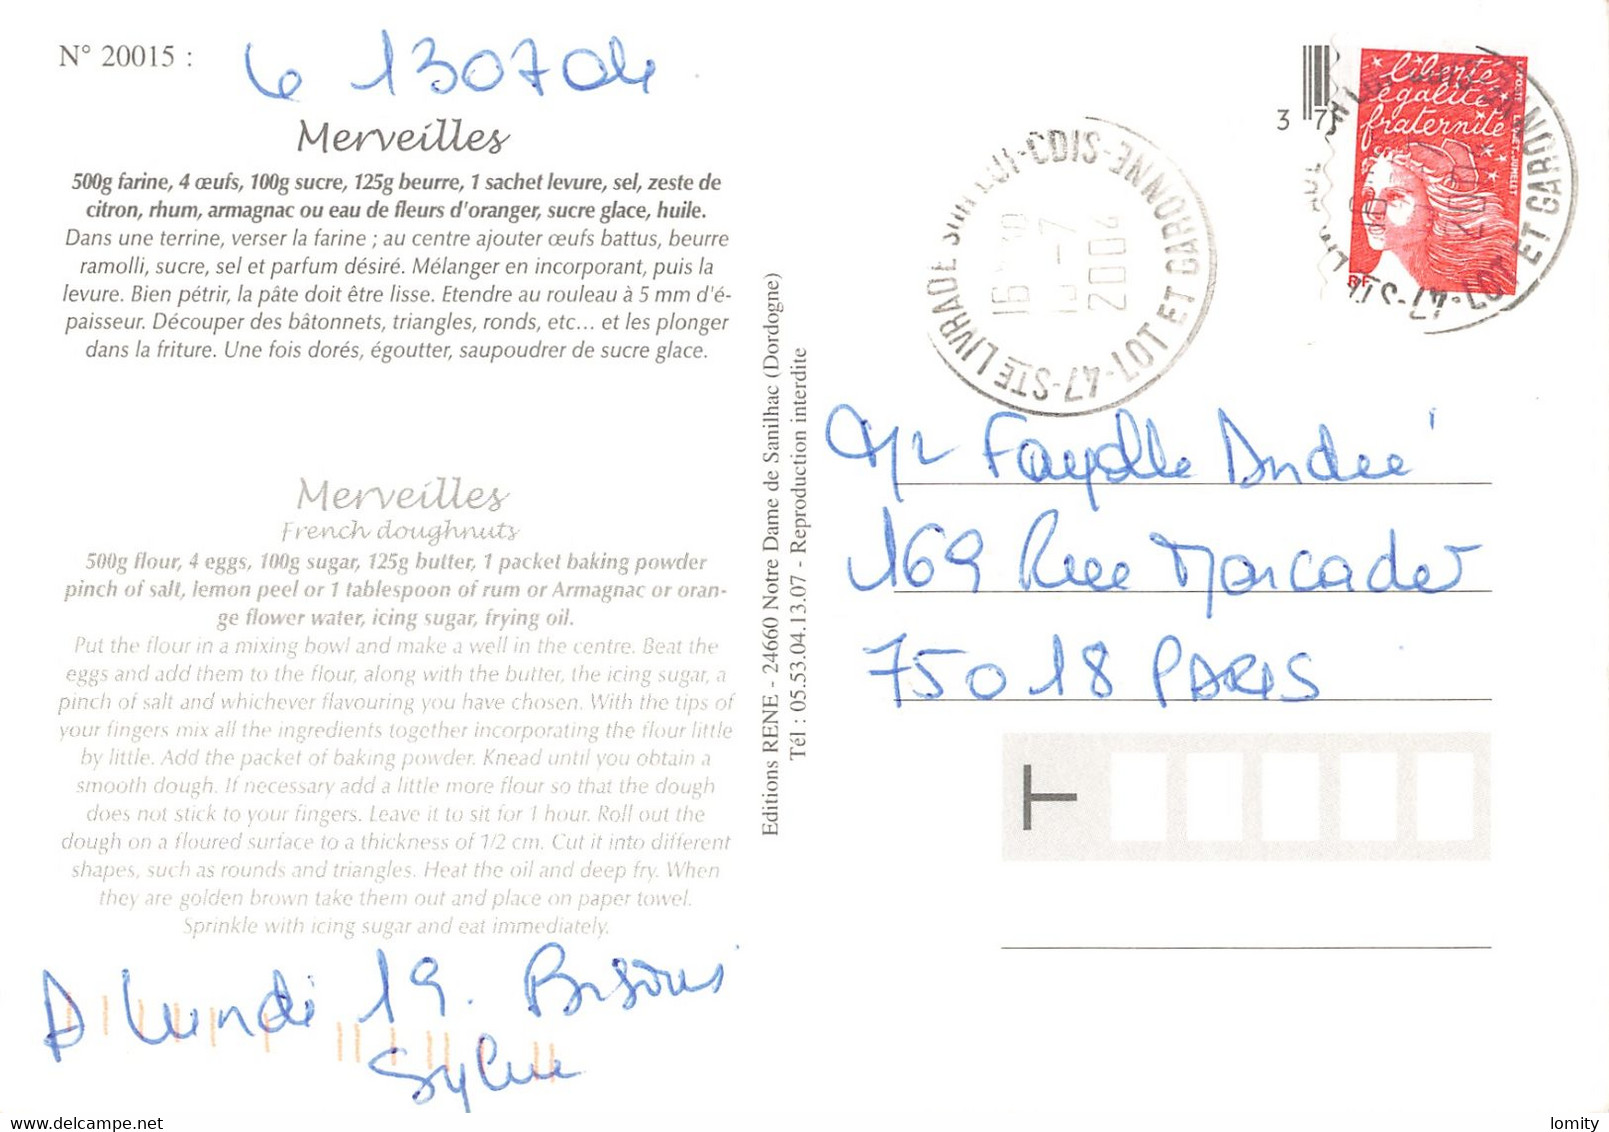 N° 20015 :
le 130704
Merveilles
500g farine, 4 œufs, 100g sucre, 125g beurre, 1 sachet levure, sel, zeste de
citron, rhum, armagnac ou eau de fleurs d'oranger, sucre glace, huile.
Dans une terrine, verser la farine ; au centre ajouter œufs battus, beurre
ramolli, sucre, sel et parfum désiré. Mélanger en incorporant, puis la
levure. Bien pétrir, la pâte doit être lisse. Etendre au rouleau à 5 mm d'é-
paisseur. Découper des bâtonnets, triangles, ronds, etc... et les plonger
dans la friture. Une fois dorés, égoutter, saupoudrer de sucre glace.
Merveilles
French doughnuts
500g flour, 4 eggs, 100g sugar, 125g butter, 1 packet baking powder
pinch of salt, lemon peel or 1 tablespoon of rum or Armagnac or oran-
ge flower water, icing sugar, frying oil.
Put the flour in a mixing bowl and make a well in the centre. Beat the
eggs and add them to the flour, along with the butter, the icing sugar, a
pinch of salt and whichever flavouring you have chosen. With the tips of
your fingers mix all the ingredients together incorporating the flour little
by little. Add the packet of baking powder. Knead until you obtain a
smooth dough. If necessary add a little more flour so that the dough
does not stick to your fingers. Leave it to sit for 1 hour. Roll out the
dough on a floured surface to a thickness of 1/2 cm. Cut it into different
shapes, such as rounds and triangles. Heat the oil and deep fry. When
they are golden brown take them out and place on paper towel.
Sprinkle with icing sugar and eat immediately.
A Lundi 19. Bisous
Sylvie
Editions RENE - 24660 Notre Dame de Sanilhac (Dordogne)
Tél : 05.53.04.13.07 - Reproduction interdite
47-STE LIVRADE SUR LOT-CDIS-
LOT ET GARONNE
-7
2004
37
liberté
égalité
fraternité
LA POSTE
RF
47-LOT ET GARONNE
Mr Fayolle André
169 Rue Marcadet
75018 PARIS
delcampe.net
lomity